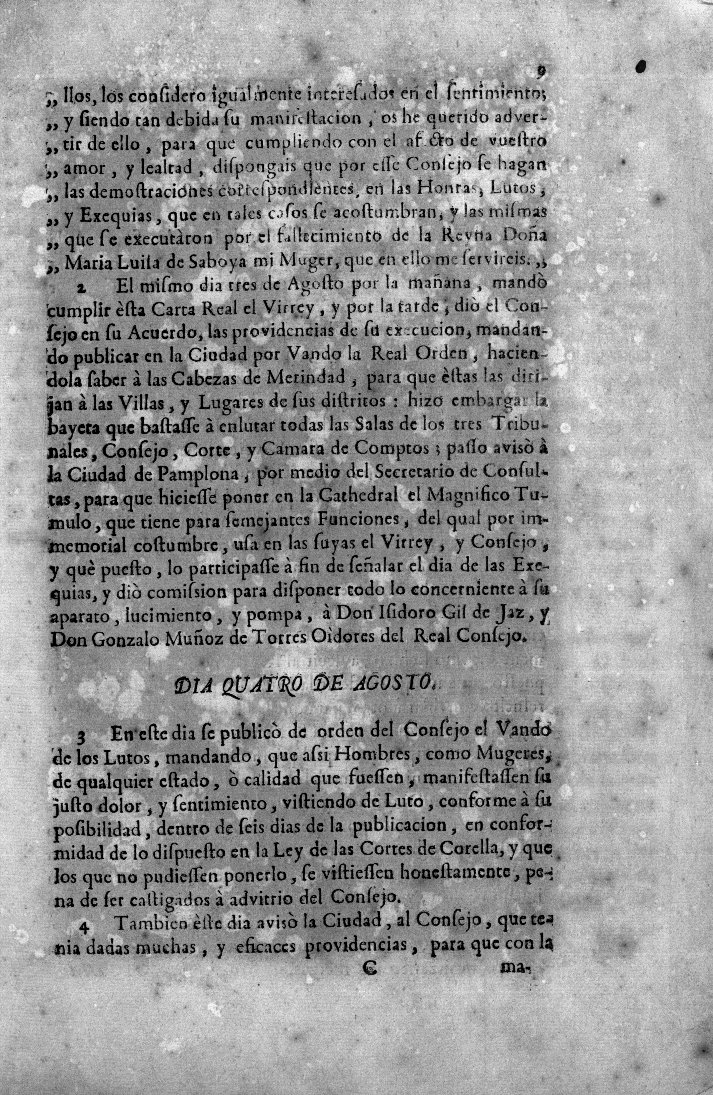 9
„ llos, los conſidero igualmente intereſados en el ſentimiento;
„ y ſiendo tan debida ſu manifeſtacion, os he querido adver-
„ tir de ello, para que cumpliendo con el afecto de vueſtro
„ amor, y lealtad, diſpongais que por eſſe Conſejo ſe hagan
„ las demoſtraciones correſpondientes, en las Honras, Lutos,
„ y Exequias, que en tales caſos ſe acoſtumbran, y las miſmas
„ que ſe executaron por el fallecimiento de la Reyna Doña
„ Maria Luiſa de Saboya mi Muger, que en ello me ſervireis. „
2 El miſmo dia tres de Agoſto por la mañana, mandò
cumplir èſta Carta Real el Virrey, y por la tarde, diò el Con-
ſejo en ſu Acuerdo, las providencias de ſu execucion, mandan-
do publicar en la Ciudad por Vando la Real Orden, hacien-
dola ſaber à las Cabezas de Merindad, para que èſtas las diri-
jan à las Villas, y Lugares de ſus diſtritos: hizo embargar la
bayeta que baſtaſſe à enlutar todas las Salas de los tres Tribu-
nales, Conſejo, Corte, y Camara de Comptos; paſſo avisò à
la Ciudad de Pamplona, por medio del Secretario de Conſul-
tas, para que hicieſſe poner en la Cathedral el Magnifico Tu-
mulo, que tiene para ſemejantes Funciones, del qual por im-
memorial coſtumbre, uſa en las ſuyas el Virrey, y Conſejo,
y què pueſto, lo participaſſe à fin de ſeñalar el dia de las Exe-
quias, y diò comiſsion para diſponer todo lo concerniente à ſu
aparato, lucimiento, y pompa, à Don Iſidoro Gil de Jaz, y
Don Gonzalo Muñoz de Torres Oidores del Real Conſejo.
DIA QUATRO DE AGOSTO.
3 En eſte dia ſe publicò de orden del Conſejo el Vando
de los Lutos, mandando, que aſsi Hombres, como Mugeres,
de qualquier eſtado, ò calidad que fueſſen, manifeſtaſſen ſu
juſto dolor, y ſentimiento, viſtiendo de Luto, conforme à ſu
poſibilidad, dentro de ſeis dias de la publicacion, en confor-
midad de lo diſpueſto en la Ley de las Cortes de Corella, y que
los que no pudieſſen ponerlo, ſe viſtieſſen honeſtamente, pe-
na de ſer caſtigados à advitrio del Conſejo.
4 Tambien èſte dia avisò la Ciudad, al Conſejo, que te-
nia dadas muchas, y eficaces providencias, para que con la
C ma-